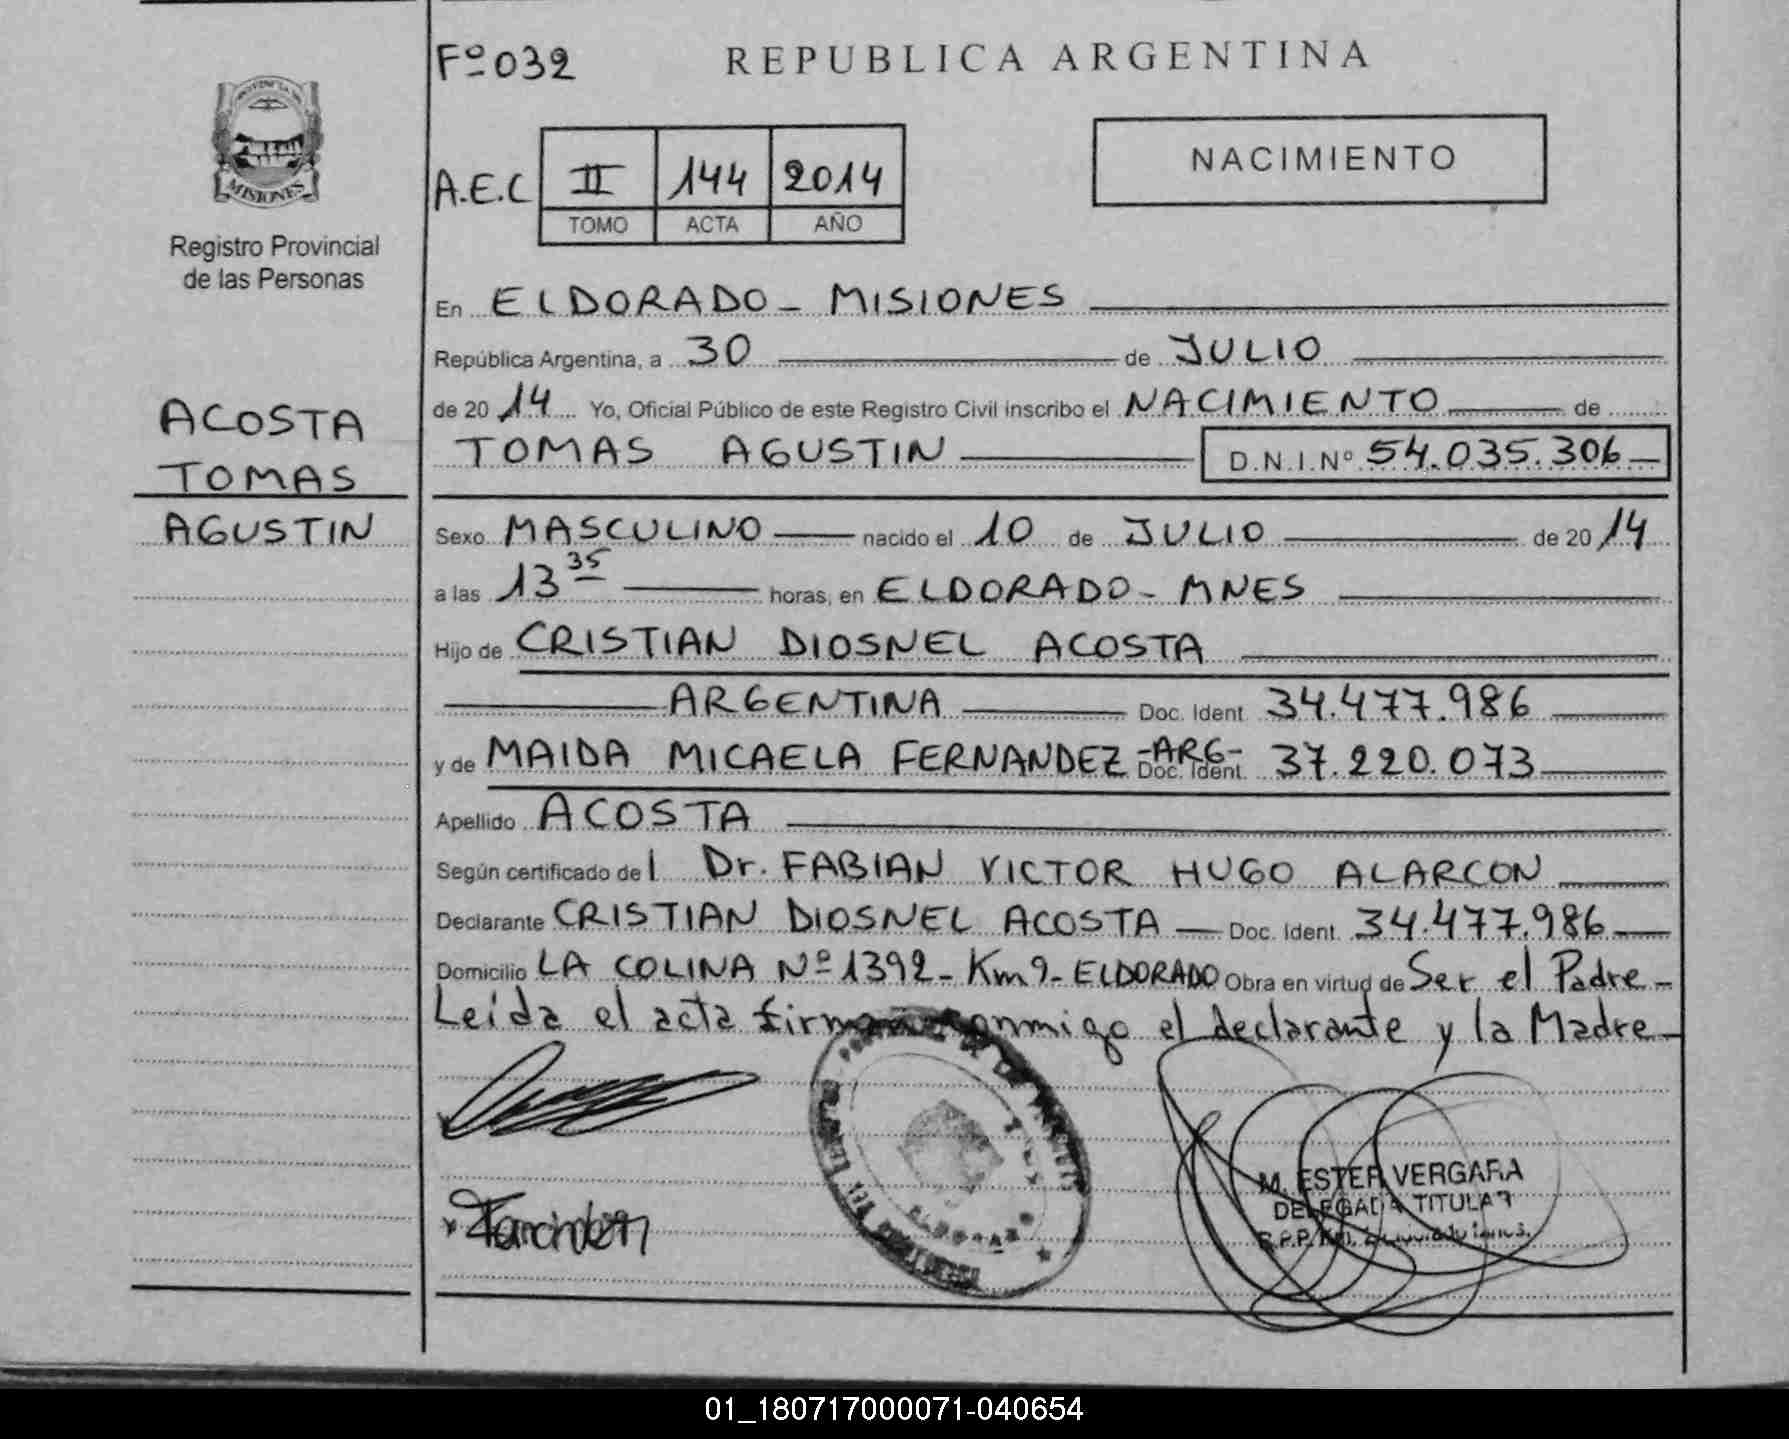 Fº 032
REPUBLICA ARGENTINA
MISIONES
Registro Provincial
de las Personas
A.E.C
II 144 2014
TOMO ACTA AÑO
NACIMIENTO
En ELDORADO - MISIONES
República Argentina, a 30 de JULIO
de 20 14 Yo, Oficial Público de este Registro Civil inscribo el NACIMIENTO de
TOMAS AGUSTIN D.N.I.Nº 54.035.306
ACOSTA
TOMAS
AGUSTIN
Sexo MASCULINO nacido el 10 de JULIO de 20 14
a las 13 35 horas, en ELDORADO - MNES
Hijo de CRISTIAN DIOSNEL ACOSTA
ARGENTINA Doc. Ident. 34.477.986
y de MAIDA MICAELA FERNANDEZ -ARG- Doc. Ident. 37.220.073
Apellido ACOSTA
Según certificado de l Dr. FABIAN VICTOR HUGO ALARCON
Declarante CRISTIAN DIOSNEL ACOSTA Doc. Ident. 34.477.986
Domicilio LA COLINA Nº 1392 - Km 9 - ELDORADO Obra en virtud de Ser el Padre -
Leída el acta firman conmigo el declarante y la Madre -
M. ESTER VERGARA
DELEGADA TITULAR
R.P.P.
ELDORADO
01_180717000071-040654